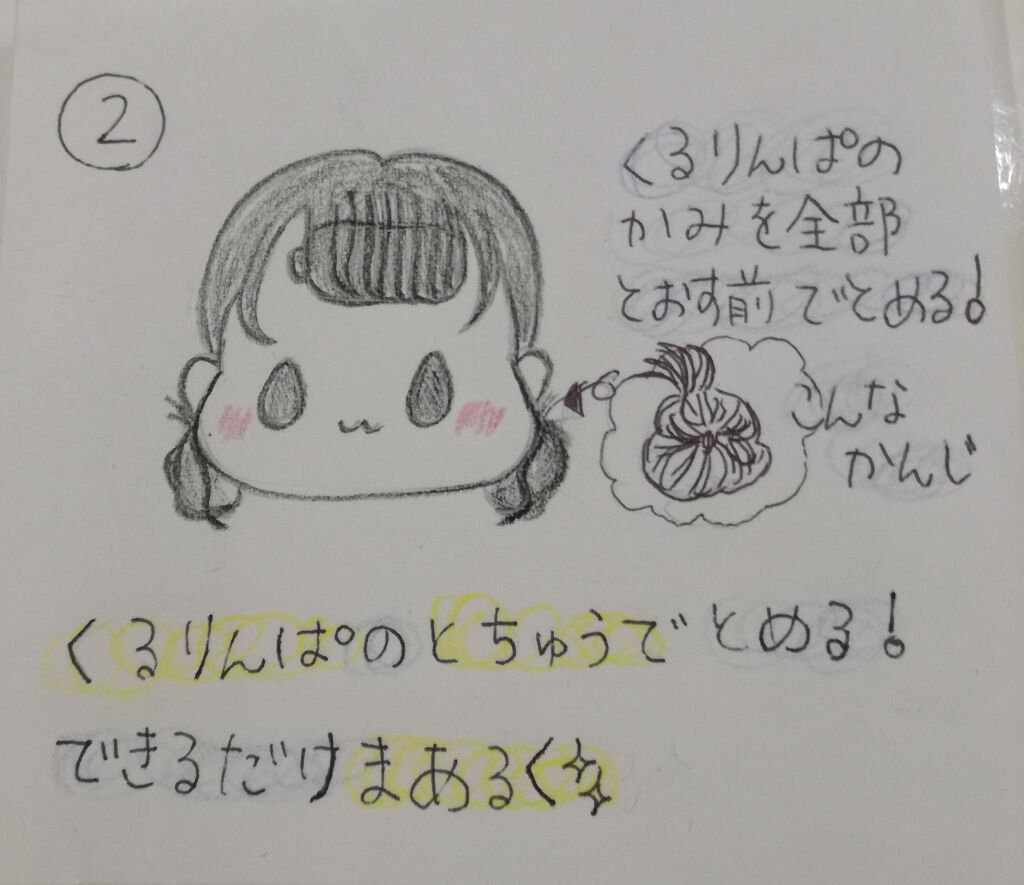 ②
くるりんぱの
かみを全部
とおす前でとめる!
こんな
かんじ
くるりんぱのとちゅうでとめる!
できるだけまあるく✨